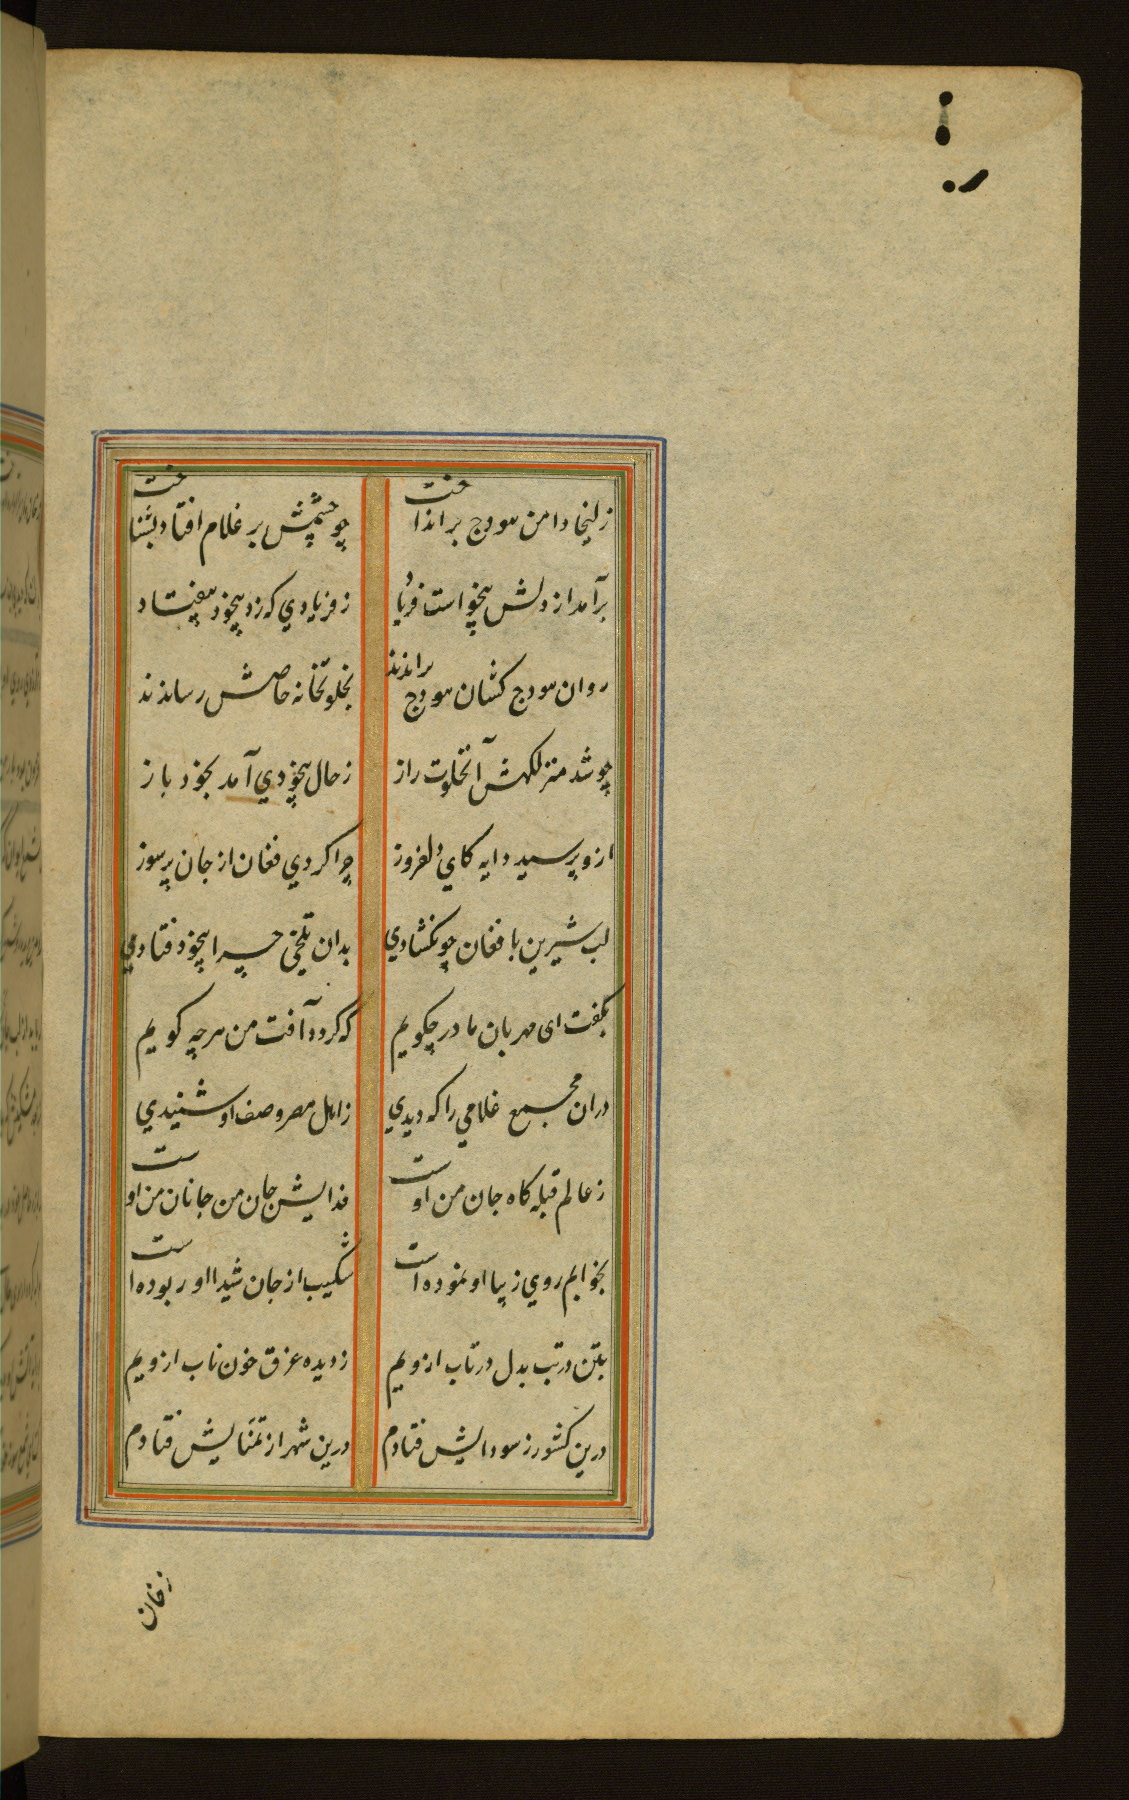 زلیخا دامن هودج برانداخت
چو چشمش بر غلام افتاد بشناخت
برآمد از دلش بیخواست فریاد
ز فریادي که زد بیخود بیفتاد
روان هودج کشان هودج براندند
بخلوتخانه خاصش رساندند
چو شد منزلکهش آنخلوت راز
ز حال بیخودي آمد بخود باز
ازو پرسید دایه کاي دلفروز
چرا کردي فغان از جان پرسوز
لب شیرین بافغان چو نکشادي
بدان تلخي چرا بیخود فتادي
بکفت ای مهربان مادر چکویم
که کردد آفت من هر چه کویم
دران مجمع غلامي را که دیدي
ز اهل مصر وصف او شنیدي
ز عالم قبله کاه جان من اوست
فدایش جان من جانان من اوست
بخوابم روي زیبا او نموده است
شکیب از جان شیدا او ربوده است
بتن در تب بدل در تاب ازویم
ز دیده غرق خون ناب ازویم
درین کشور ز سودایش فتادم
درین شهر از تمنایش فتادم
زخان